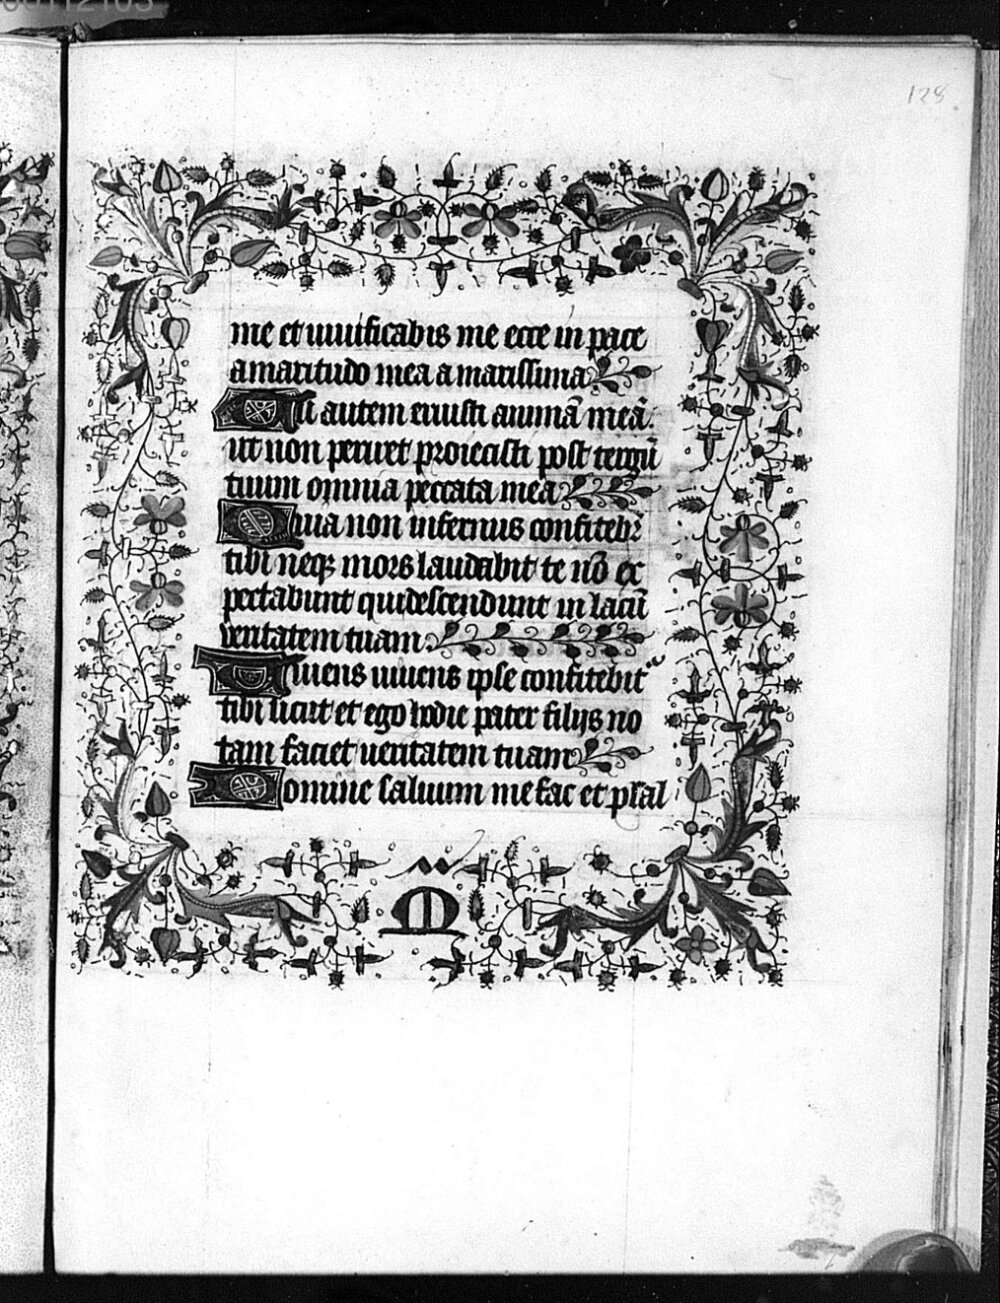 128
me et uiuificabis me ecce in pace
amaritudo mea amarissima
Tu autem eruisti animā meā.
ut non periret proiecisti post tergū
tuum omnia peccata mea
Quia non infernus confitebr̄
tibi neqꝫ mors laudabit te nō ex
pectabunt qui descendunt in lacū
ueritatem tuam.
Viuens uiuens ipse confitebit̉
tibi sicut et ego hodie pater filijs no
tam faciet ueritatem tuam
Domine saluum me fac et psal
M